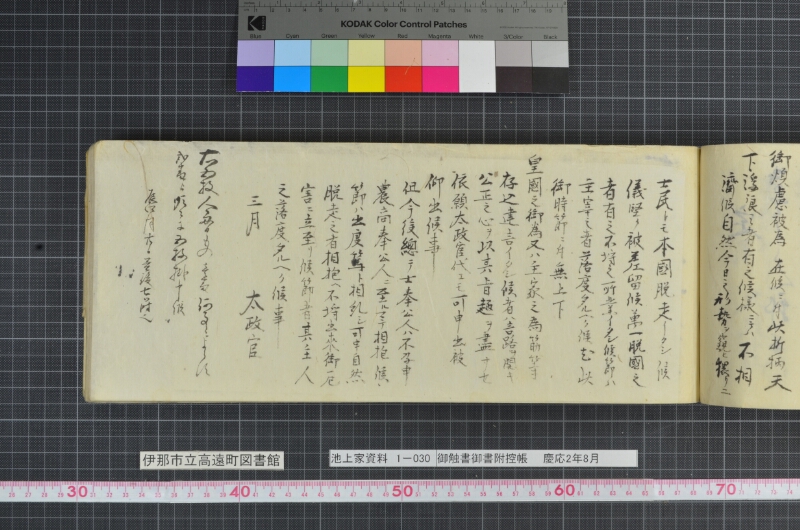 KODAK Color Control Patches
Blue Cyan Green Yellow Red Magenta White 3/Color Black
御煩慮被為 在候ニ付此折柄天
下浮浪之者有之候様ニテハ不相
濟候自然今日之形勢ヲ窺ヒ猥リニ
士民トモ本國脱走イタシ候
儀堅ク被差留候萬一脱國之
者有之不埒之所業イタシ候節ハ
主宰之者落度タルヘク候尤此
御時節ニ付無上下
皇國之御為又ハ主家之為筋等
存込建言イタシ候者ハ言路ヲ開キ
公正之心ヲ以其旨趣ヲ盡サセ
依願太政官代ヘモ可申出被
仰出候事
但今後總テ士奉公人ハ不及申
農商奉公人ニ至ル迄相抱候
節ハ出處篤ト相糺シ可申自然
脱走之者相抱ヘ不埒出来御厄
害ニ立至リ候節者其主人
之落度タルヘク候事
三月
太政官
伊那市立高遠町図書館
池上家資料 1-030 御触書御書附控帳 慶応2年8月
30 40 50 60 70